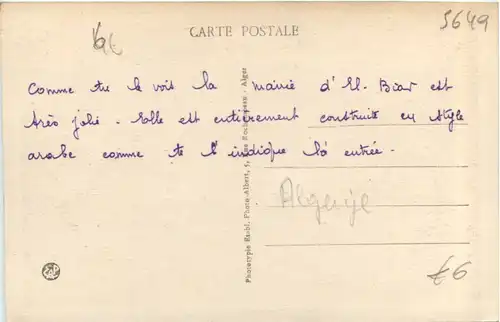 CARTE POSTALE
5649
Comme tu le vois la mairie d'El-Biar est
très jolie. Elle est entièrement construite en style
arabe comme te l'indique l'entrée.
Algerije
£6
Phototypie Photo-Albert, Alger